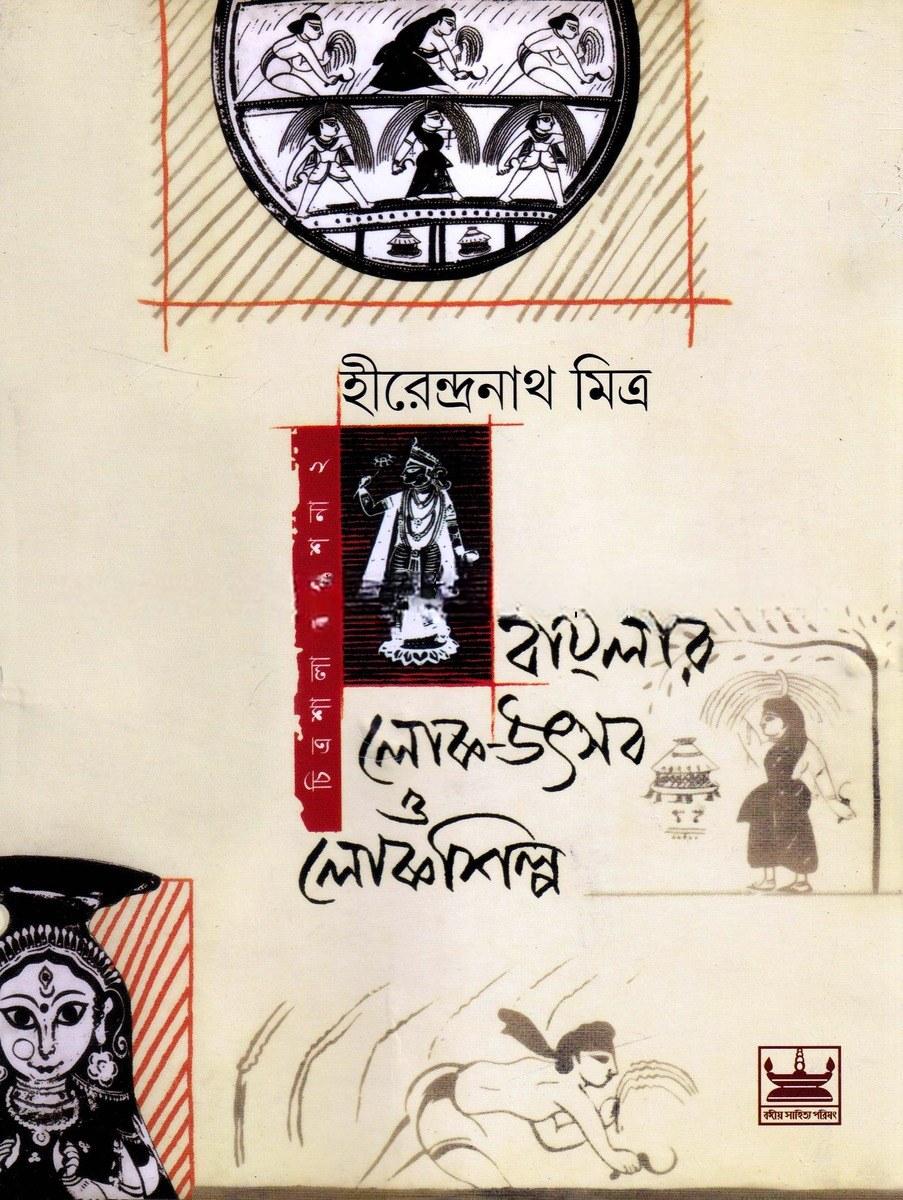 হীরেন্দ্রনাথ মিত্র
চিত্রশালা বক্তৃতামালা ২
বাংলার
লোক-উৎসব
ও
লোকশিল্প
বঙ্গীয় সাহিত্য পরিষৎ